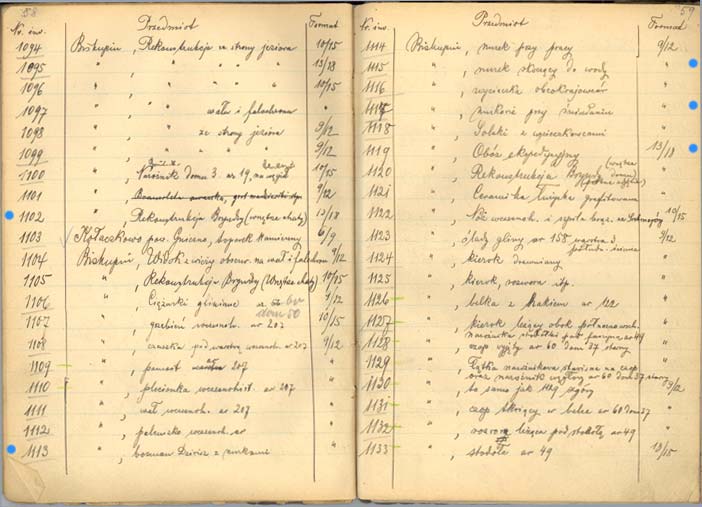 58
Nr. inw. Przedmiot Format
1094 Biskupin, Rekonstrukcja ze strony jeziora 10/15
1095 " , " " " " 13/18
1096 " , " " " " 10/15
1097 " , " wału i falochronu "
1098 " , " ze strony jeziora 9/12
1099 " , " " " 9/12
1100 " , Narożnik domu 3. ar 19, 10/15
1101 " , 9/12
1102 " , Rekonstrukcja Brygidy (wnętrze chaty) 13/18
1103 Kołaczkowo pow. Gniezno, toporek kamienny 6/9
1104 Biskupin, Widok z wieży obserw. na wał i falochron 9/12
1105 " , Rekonstrukcja Brygidy (Wnętrze chaty) 10/15
1106 " , Ciężarki gliniane ar 6w 9/12
dom 50
1107 " , grzebień wczesnoh. ar 207 10/15
1108 " , czaszka pod warstwą wczesnoh. ar 207 9/12
1109 " , pomost ar 207 "
1110 " , plecionka wczesnohist. ar 207 "
1111 " , wał wczesnoh. ar 207 "
1112 " , palenisko wczesnoh. ar "
1113 " , bosman Dzirisz z nurkami "
59
Nr. inw. Przedmiot Format
1114 Biskupin, nurek przy pracy 9/12
1115 " , nurek skaczący do wody "
1116 " , wycieczka obcokrajowców "
1117 " , nurkowie przy śniadaniu "
1118 " , Solski z wycieczkowcami "
1119 " , Obóz ekspedycyjny 13/18
1120 " , Rekonstrukcja Brygidy (wnętrze domu)
1121 " , Ceramika łużycka grafitowana "
1122 " , Nóż wczesnoh. i szpila brąz. ze 10/15
1123 " , ślady gliny ar 158 warstwa 3 9/12
1124 " , kierok drewniany "
1125 " , kierok, rozwora itp. "
1126 " , belka z hakiem ar 122 "
1127 " , kierok leżący obok północnozach. "
narożnika stodółki pod parupą ar 49
1128 " , czop wyjęty ar 60 dom 37 stary "
1129 " , Łątka narożnikowa stawiona na czop "
oraz narożnik wzięty ar 60 dom 37 stary
1130 " , to samo jak 1129 z góry 9/12
1131 " , czop tkwiący w belce ar 60 dom 37 "
1132 " , rozwora leżąca pod stodołą ar 49 "
1133 " , stodoła ar 49 13/15